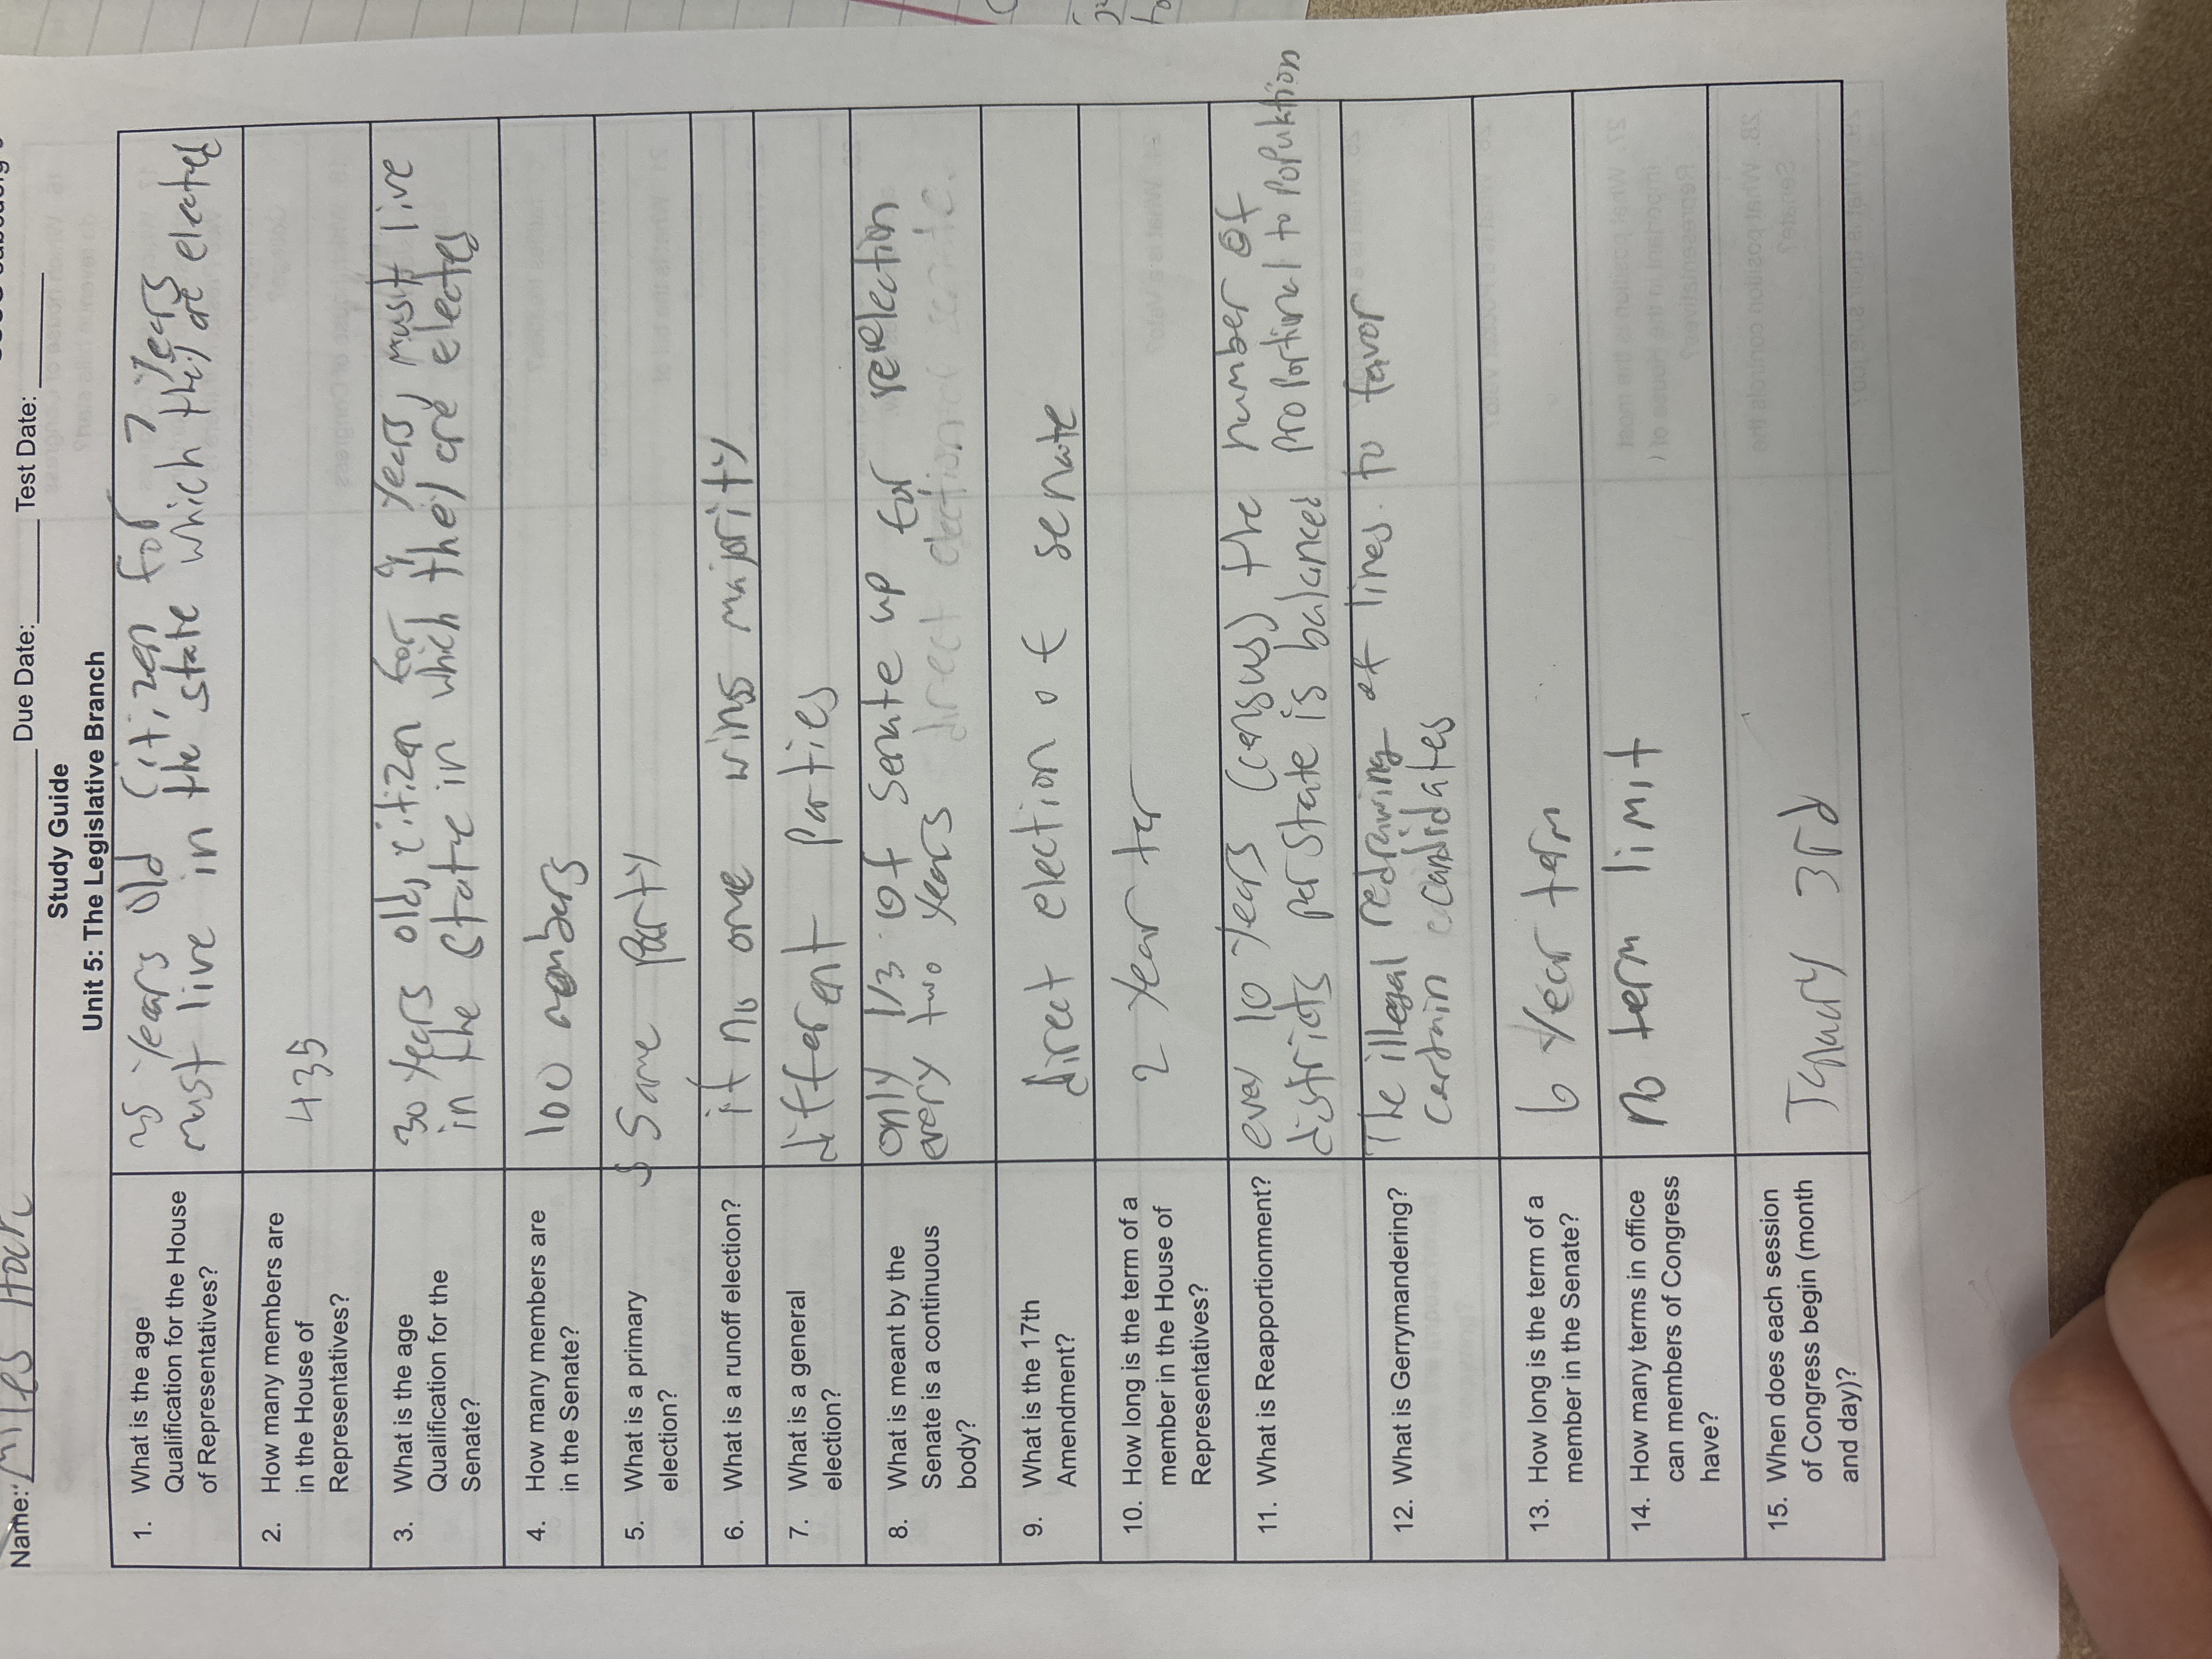 Name: Miles
Due Date:
Test Date:
Study Guide
Unit 5: The Legislative Branch
1. What is the age
Qualification for the House
of Representatives?
25 years old citizen for 7 years
must live in the state which they are elected
2. How many members are
in the House of
Representatives?
435
3. What is the age
Qualification for the
Senate?
30 years old, citizen for 9 years, must live
in the state in which they are electes
4. How many members are
in the Senate?
100 members
5. What is a primary
election?
Same Party
6. What is a runoff election?
if no one wins majority
7. What is a general
election?
different parties
8. What is meant by the
Senate is a continuous
body?
only 1/3 of Senate up for reelection
every two years
direct election of senate.
9. What is the 17th
Amendment?
direct election of senate
10. How long is the term of a
member in the House of
Representatives?
2 year ter
11. What is Reapportionment?
every 10 years (census) the number of
districts per state is balanced proportional to population
12. What is Gerrymandering?
The illegal redrawing of lines to favor
certain candidates
13. How long is the term of a
member in the Senate?
6 year term
14. How many terms in office
can members of Congress
have?
no term limit
15. When does each session
of Congress begin (month
and day)?
3rd